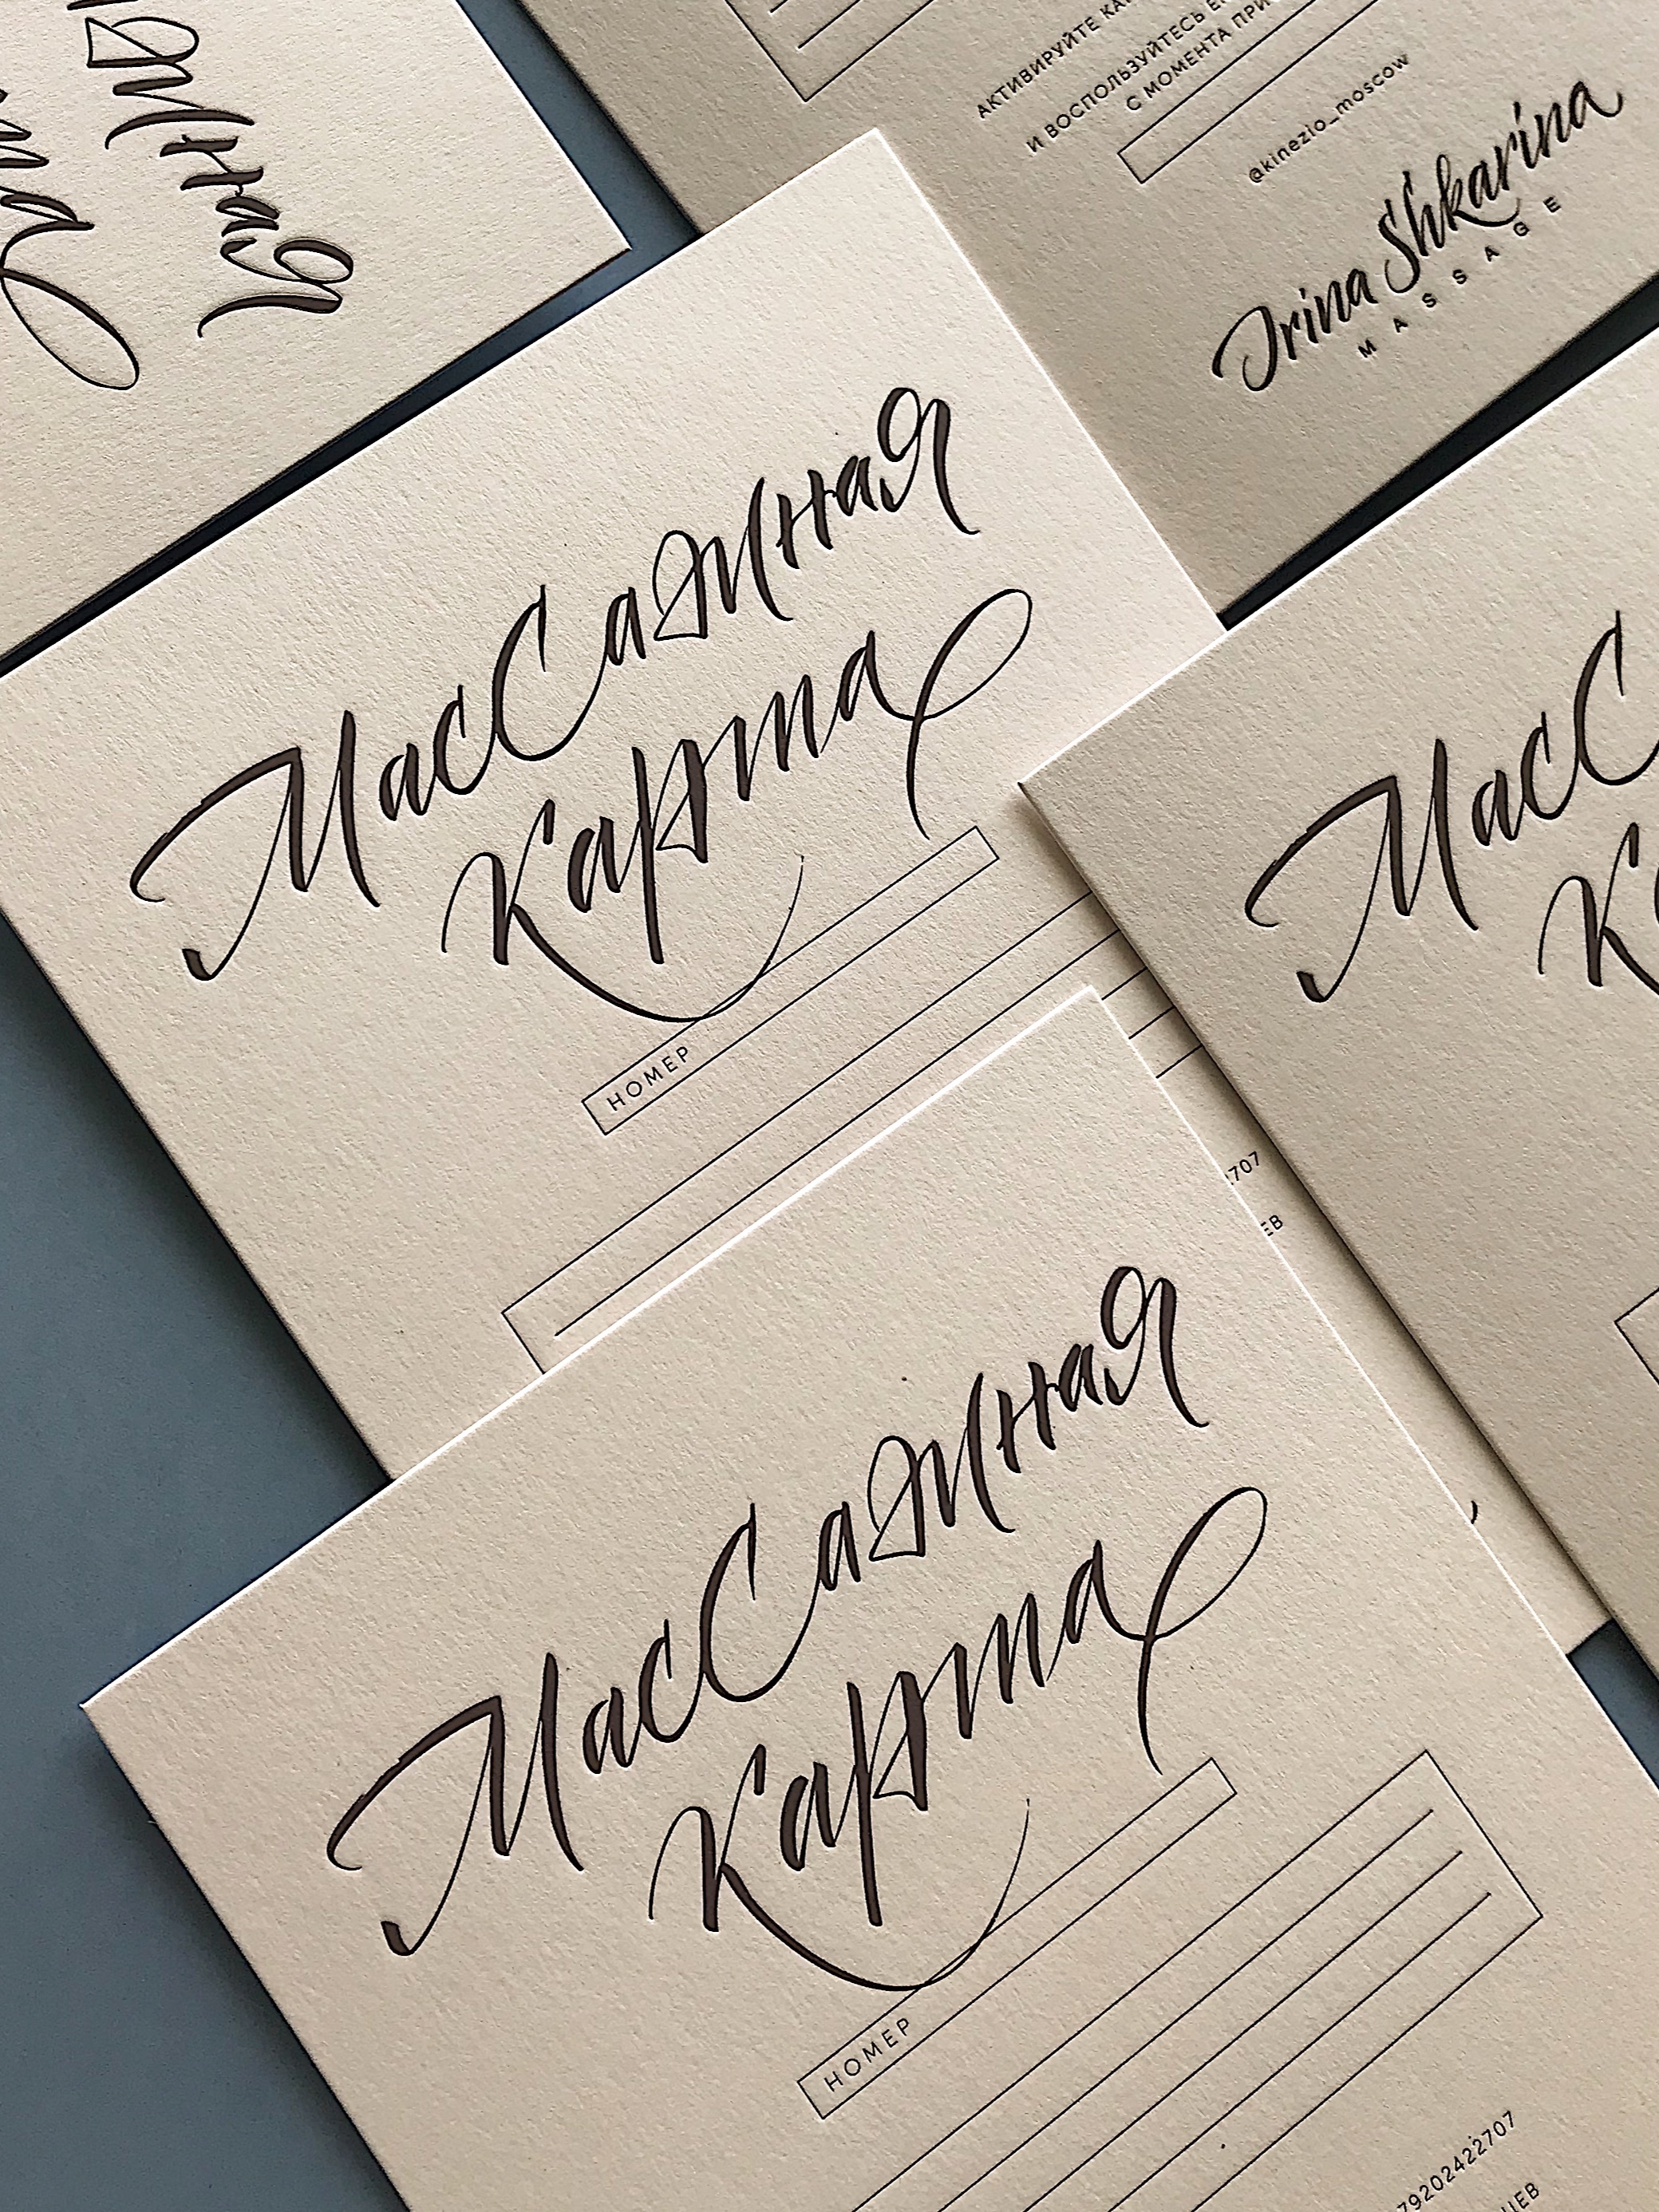 АКТИВИРУЙТЕ
И ВОСПОЛЬЗУЙТЕСЬ
С МОМЕНТА
@kinezio_moscow
Irina Shkarina
MASSAGE
МасСажная
Карта
НОМЕР
МасСажная
Карта
НОМЕР
79202422707